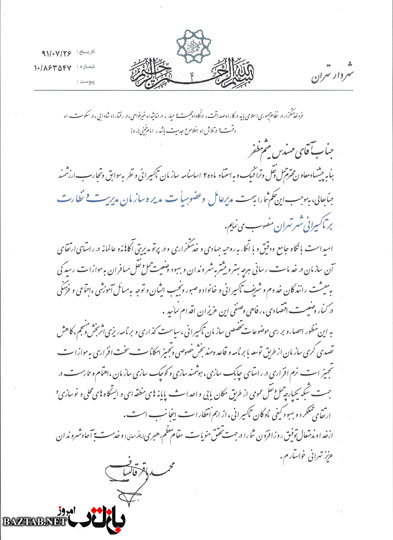 تاریخ: ۹۱/۰۷/۲۶
شماره: ۱۰/۸۶۳۵۴۷
پیوست:
بسم الله الرحمن الرحیم
شهردار تهران
جناب آقای مهندس میثم مظفر
بنا به پیشنهاد معاون محترم حمل و نقل و ترافیک و به استناد ماده ۲ اساسنامه سازمان تاکسیرانی و نظر به سوابق و تجارب ارزشمند
جنابعالی، به موجب این حکم شما را به سمت مدیرعامل و عضو هیأت مدیره سازمان مدیریت و نظارت
بر تاکسیرانی شهر تهران منصوب می نمایم.
امید است با نگاه جامع و دقیق و با اتکا به روحیه جهادی و خدمتگزاری و در پرتو مدیریتی آگاهانه و عالمانه در راستای ارتقای
آن سازمان در خدمات رسانی هر چه بهتر و بیشتر به شهروندان و بهبود وضعیت حمل و نقل مسافران به موازات رسیدگی
به معیشت رانندگان خدوم و شریف تاکسیرانی و خانواده صبور و نجیب ایشان و توجه به مسائل آموزشی، اجتماعی و فرهنگی
در کنار وضعیت اقتصادی، رفاهی و صنفی این عزیزان اقدام نمائید.
به این منظور احصاء و بررسی موضوعات تخصصی سازمان تاکسیرانی، سیاست گذاری و برنامه ریزی اثربخش و منسجم، کاهش
تصدی گری سازمان از طریق توسعه با برنامه و قاعده مند بخش خصوصی و تجهیز امکانات سخت افزاری به موازات
تجهیزات نرم افزاری در راستای چابک سازی، هوشمندسازی و کوچک سازی سازمان، اهتمام و ممارست در
جهت شبکه یکپارچه حمل و نقل عمومی از طریق مکان یابی و احداث پایانه های منطقه ای و ایستگاه های محلی و نوسازی و
ارتقای عملکرد و بهبود کیفی ناوگان تاکسیرانی، از اهم انتظارات اینجانب است.
از خداوند متعال توفیق روزافزون شما را در جهت تحقق منویات مقام معظم رهبری و خدمت به آحاد شهروندان
عزیز تهرانی خواستارم.
محمد باقر قالیباف
بازتاب امروز
BAZTAB.NET